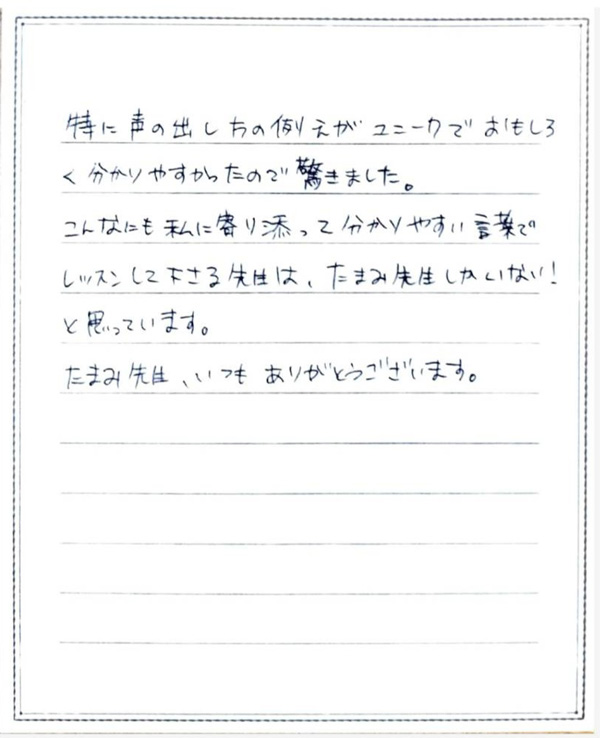 特に声の出し方の例えがユニークでおもしろ
く分かりやすかったので驚きました。
こんなにも私に寄り添って分かりやすい言葉で
レッスンして下さる先生は、たまみ先生しかいない！
と思っています。
たまみ先生、いつもありがとうございます。